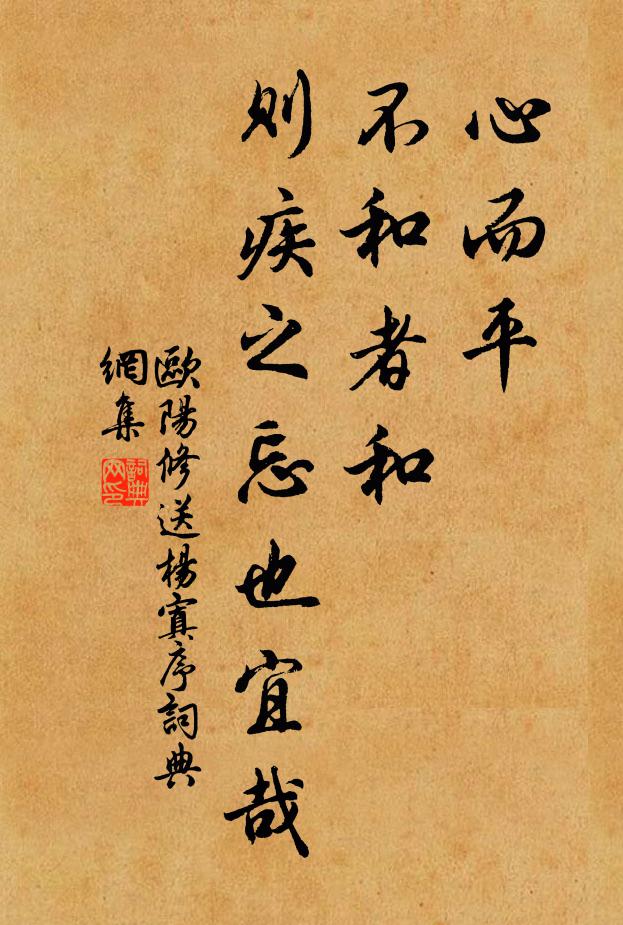 心而平
不和者和
則疾之忘也宜哉
歐陽修送楊寘序詞典
網集
詞典網印